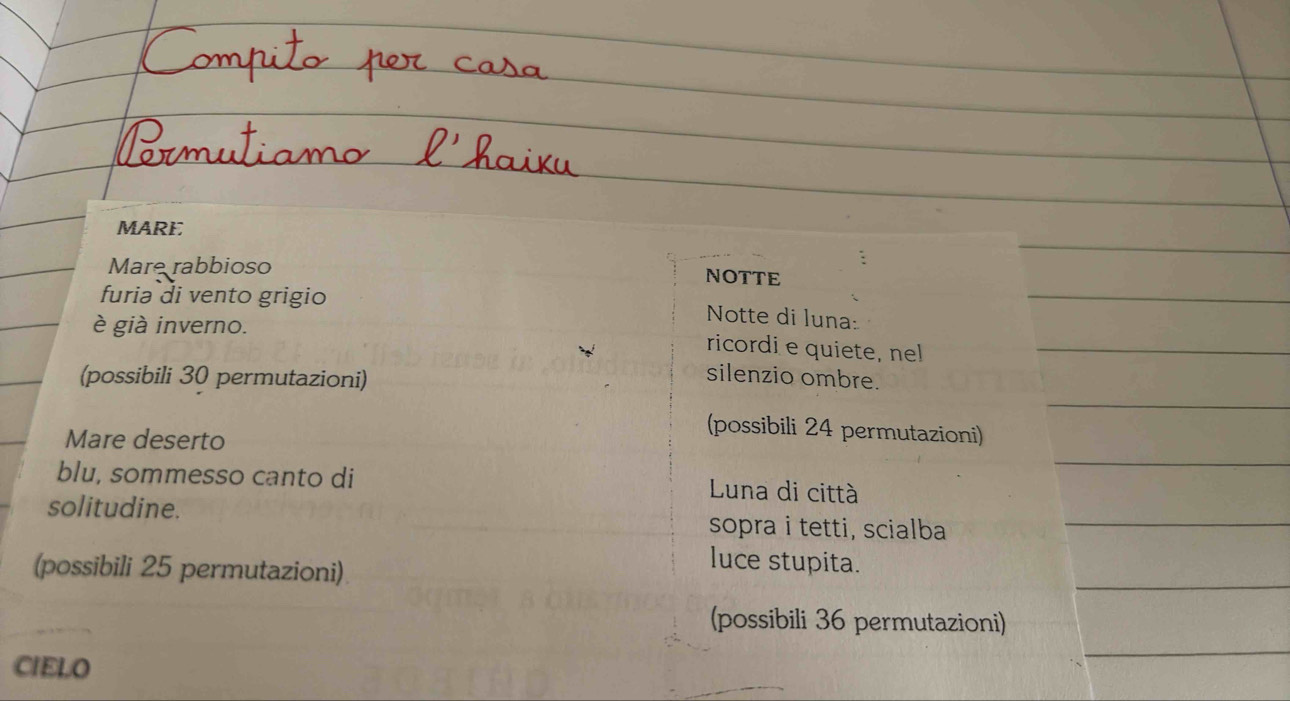 Compito per casa
Permutiamo l'haiku
MARE
Mare rabbioso
furia di vento grigio
è già inverno.
(possibili 30 permutazioni)
Mare deserto
blu, sommesso canto di
solitudine.
(possibili 25 permutazioni)
CIELO
NOTTE
Notte di luna:
ricordi e quiete, nel
silenzio ombre.
(possibili 24 permutazioni)
Luna di città
sopra i tetti, scialba
luce stupita.
(possibili 36 permutazioni)